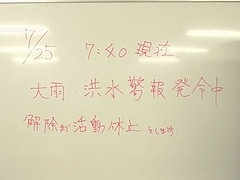 7/25 7:40 現在
大雨・洪水警報発令中
解除まで活動休止とします。